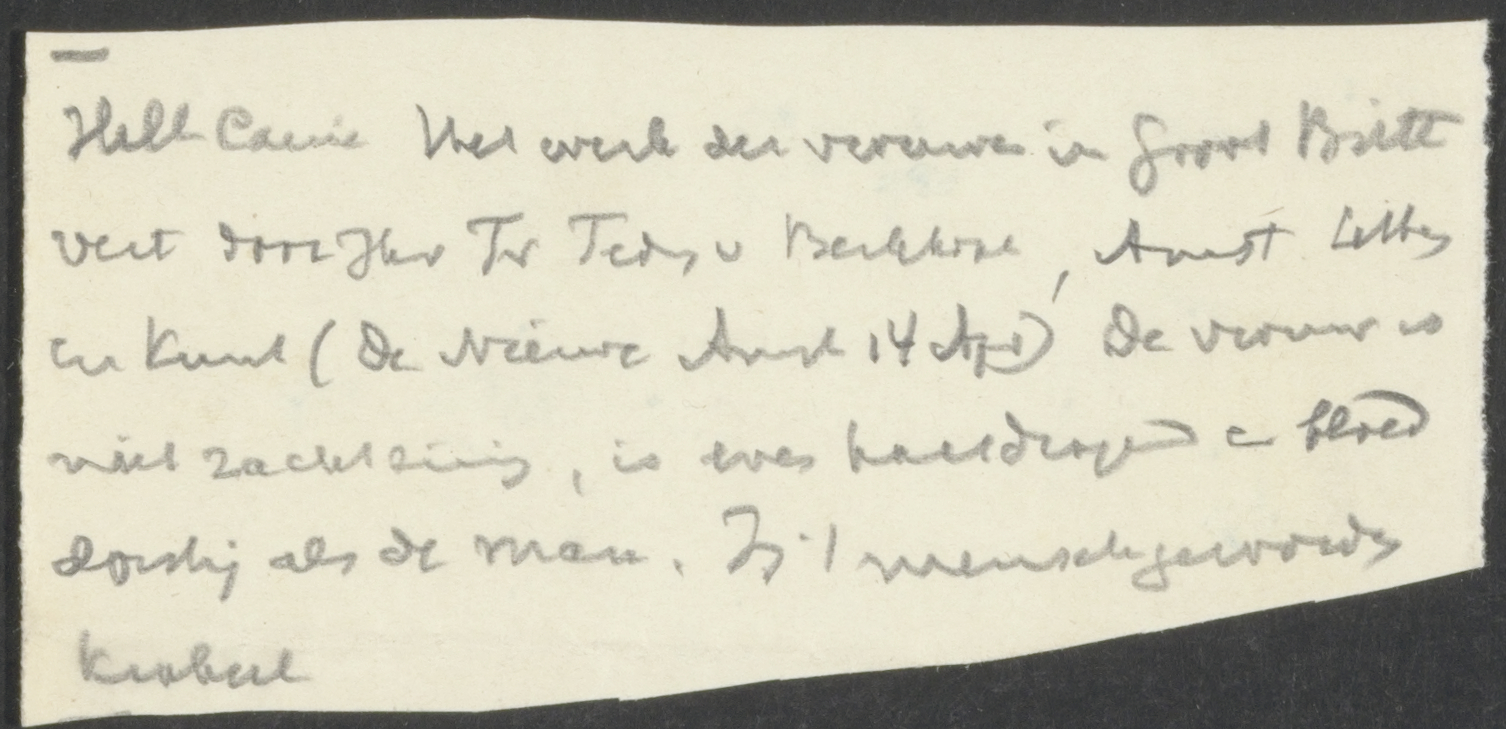 Hall Caine Het werk der vrouwen in Groot Britt
vert door Jhr Teding v Berkhout, Amst Letters
en Kunst (De Nieuwe Amst 14 Apr) De vrouw is
niet zachtzinnig, is even haatdragend en bloed
dorstig als de man. Zij 't mensch geworden